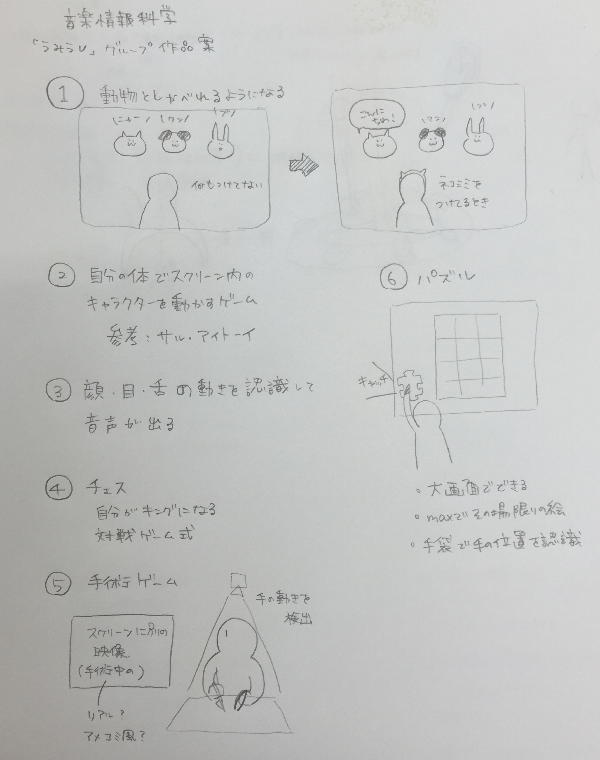 音楽情報科学
「うみうし」グループ作品案
① 動物としゃべれるようになる
\ニャー/ \ワン/
何もつけてない
こんにちわ!
\ワン/
ネコミミを
つけてるとき
② 自分の体でスクリーン内の
キャラクターを動かすゲーム
参考:サル・アイトーイ
③ 顔・目・舌の動きを認識して
音声が出る
④ チェス
自分がキングになる
対戦ゲーム式
⑤ 手術ゲーム
スクリーンに別の
映像
(手術中の)
リアル?
アメコミ風?
手の動きを
検出
⑥ パズル
キャッチ
・大画面でできる
・maxでその場限りの絵
・手袋で手の位置を認識